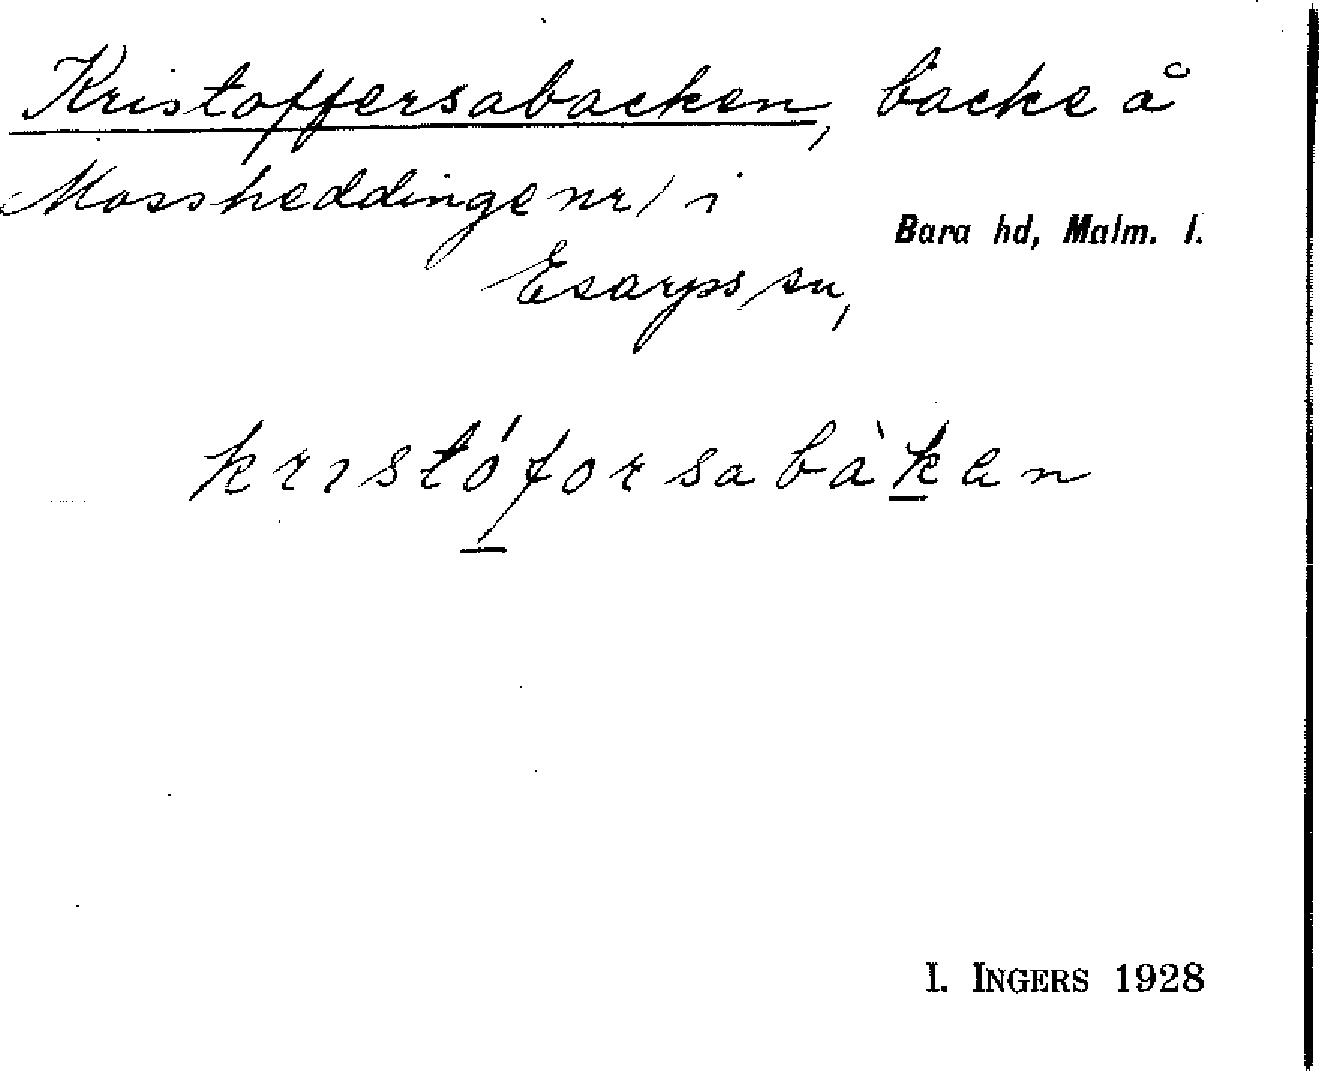 Kristoffersabacken, backe å
Mossheddinge nr 1 i
Bara hd, Malm. l.
Esarps sn,
kristóforsabàkan
I. INGERS 1928